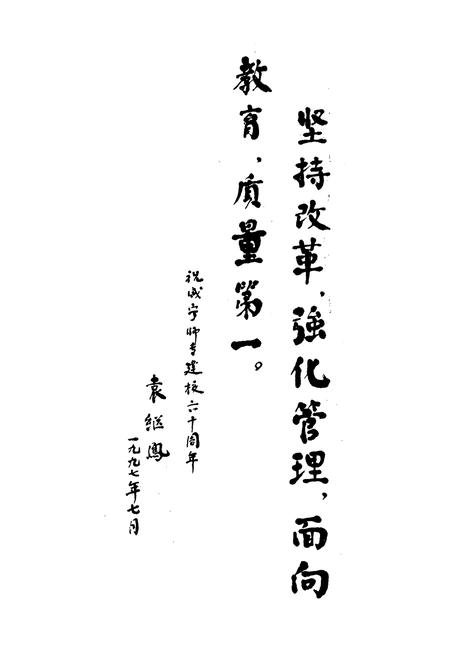 坚持改革、强化管理，面向
教育，质量第一。
祝咸宁师专建校六十周年
袁继凤
一九九七年七月